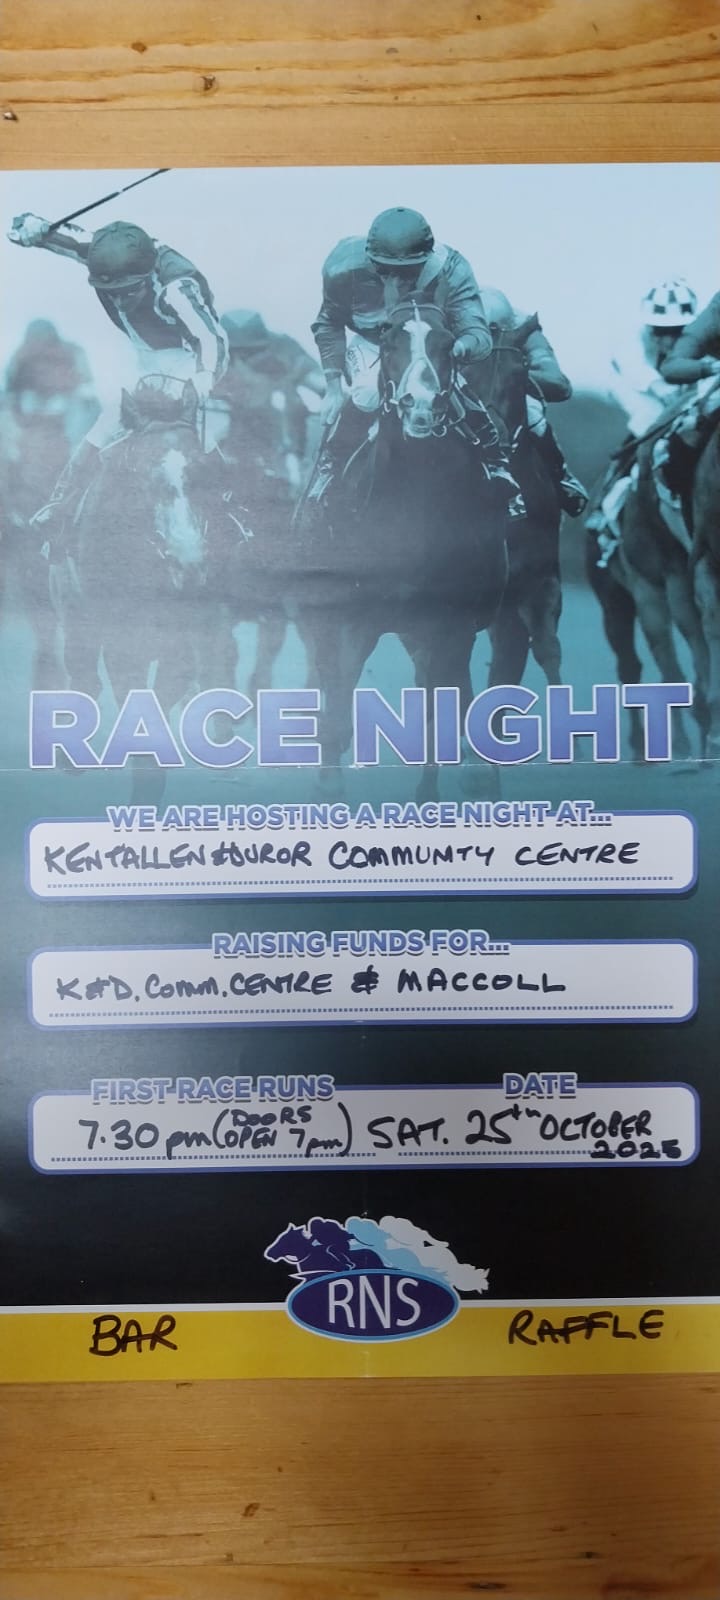 RACE NIGHT
WE ARE HOSTING A RACE NIGHT AT...
KENTALLEN & DUROR COMMUNTY CENTRE
RAISING FUNDS FOR...
K & D. COMM. CENTRE & MACCOLL
FIRST RACE RUNS
DATE
7.30 pm (DOORS OPEN 7pm) SAT. 25th OCTOBER
2025
RNS
BAR
RAFFLE